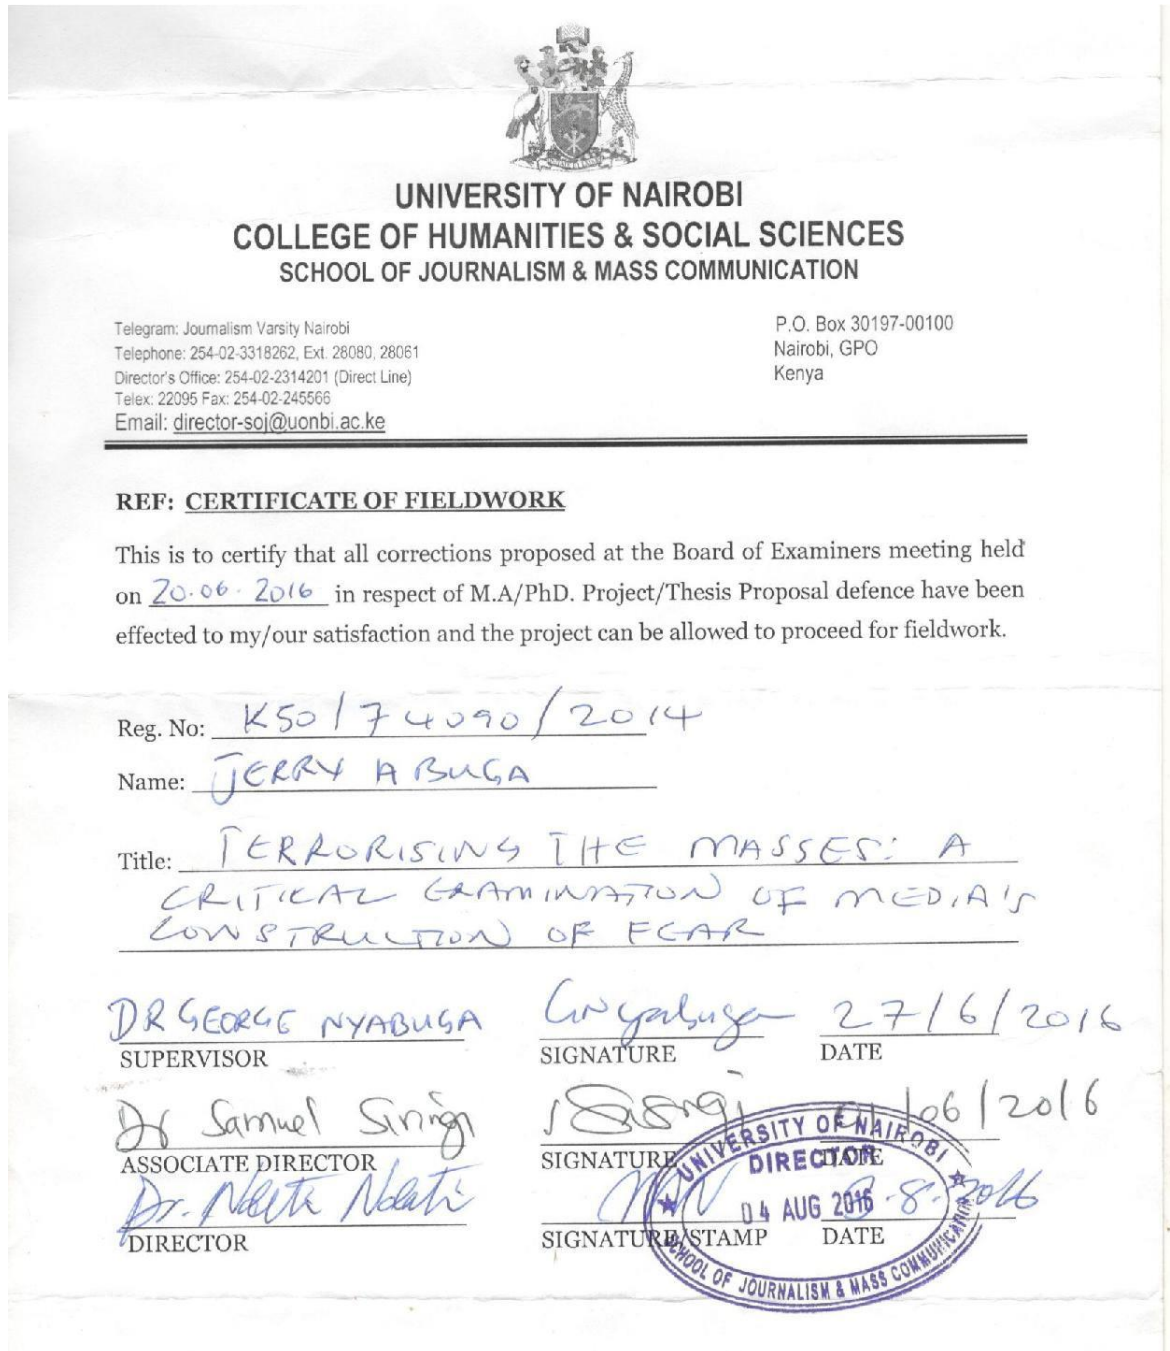 UNIVERSITY OF NAIROBI
COLLEGE OF HUMANITIES & SOCIAL SCIENCES
SCHOOL OF JOURNALISM & MASS COMMUNICATION
Telegram: Journalism Varsity Nairobi
Telephone: 254-02-3318262, Ext. 28080, 28061
Director's Office: 254-02-2314201 (Direct Line)
Telex: 22095 Fax: 254-02-245566
Email: director-soj@uonbi.ac.ke
P.O. Box 30197-00100
Nairobi, GPO
Kenya
REF: CERTIFICATE OF FIELDWORK
This is to certify that all corrections proposed at the Board of Examiners meeting held
on 20.06.2016 in respect of M.A/PhD. Project/Thesis Proposal defence have been
effected to my/our satisfaction and the project can be allowed to proceed for fieldwork.
Reg. No: K50/74090/2014
Name: JERRY ABUGA
Title: TERRORISING THE MASSES: A
CRITICAL EXAMINATION OF MEDIA'S
CONSTRUCTION OF FEAR
DR GEORGE NYABUGA GNyabuga 27/6/2016
SUPERVISOR SIGNATURE DATE
Dr Samuel Siringi /06/2016
ASSOCIATE DIRECTOR SIGNATURE DATE
Dr. Ndeti Ndati 8.2016
DIRECTOR SIGNATURE/STAMP DATE
UNIVERSITY OF NAIROBI
DIRECTOR
04 AUG 2016
SCHOOL OF JOURNALISM & MASS COMMUNICATION